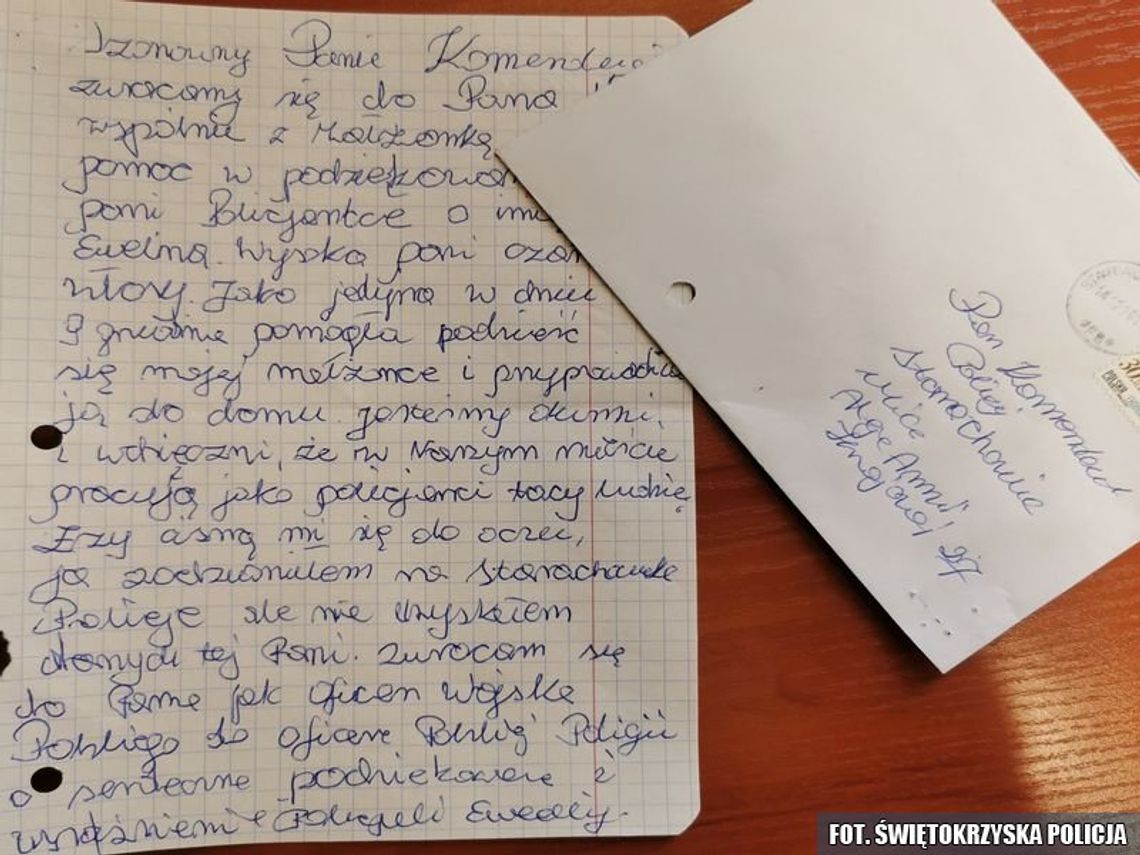 Szanowny Panie Komendanci
zwracamy się do Pana
wspólnie z Małżonką
pomoc w podziękowan
pani Policjantce o imi
Ewelina. Wysoka pani czar
włosy. Jako jedyna w dniu
9 grudnia pomogła podnieść
się mojej małżonce i przyprowadziła
ją do domu. Jesteśmy dumni,
i wdzięczni, że w Naszym mieście
pracują jako policjanci tacy ludzie.
Łzy cisną mi się do oczu,
ja zadzwoniłem na Starachowicką
Policję ale nie uzyskałem
danych tej Pani. Zwracam się
do Pana jak oficer Wojska
Polskiego do oficera Polskiej Policji
o serdeczne podziękowanie i
Policjantki Eweliny.
Pan Komendant
Policji
Starachowice
ulica
Aleja Armii
Krajowej 27
FOT. ŚWIĘTOKRZYSKA POLICJA